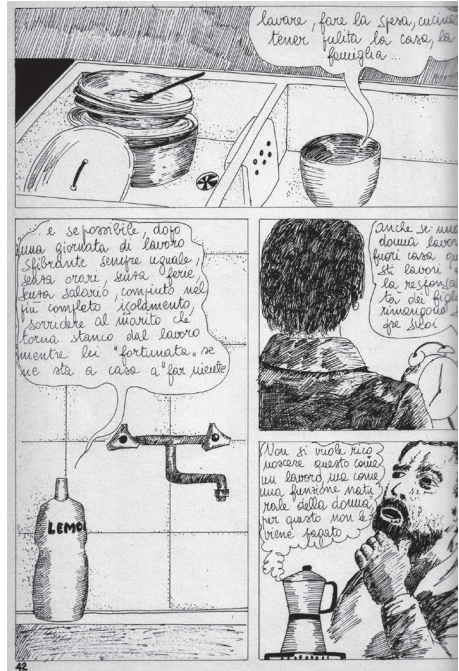 lavare, fare la spesa, cucina
tener pulita la casa, la
famiglia...
e se possibile, dopo
una giornata di lavoro
sfibrante sempre uguale,
senza orari, senza ferie,
senza salario, compiuto nel
più completo isolamento,
sorridere al marito che
torna stanco dal lavoro
mentre lei "fortunata" se
ne sta a casa a "far niente
anche se una
donna lavor
fuori casa qu
sti lavori e
la responsabi
tà dei figli
rimangono se
pre suoi
Non si vuole rico
noscere questo come
un lavoro, ma come
una funzione natu
rale della donna
per questo non le
viene pagato
LEMO
42